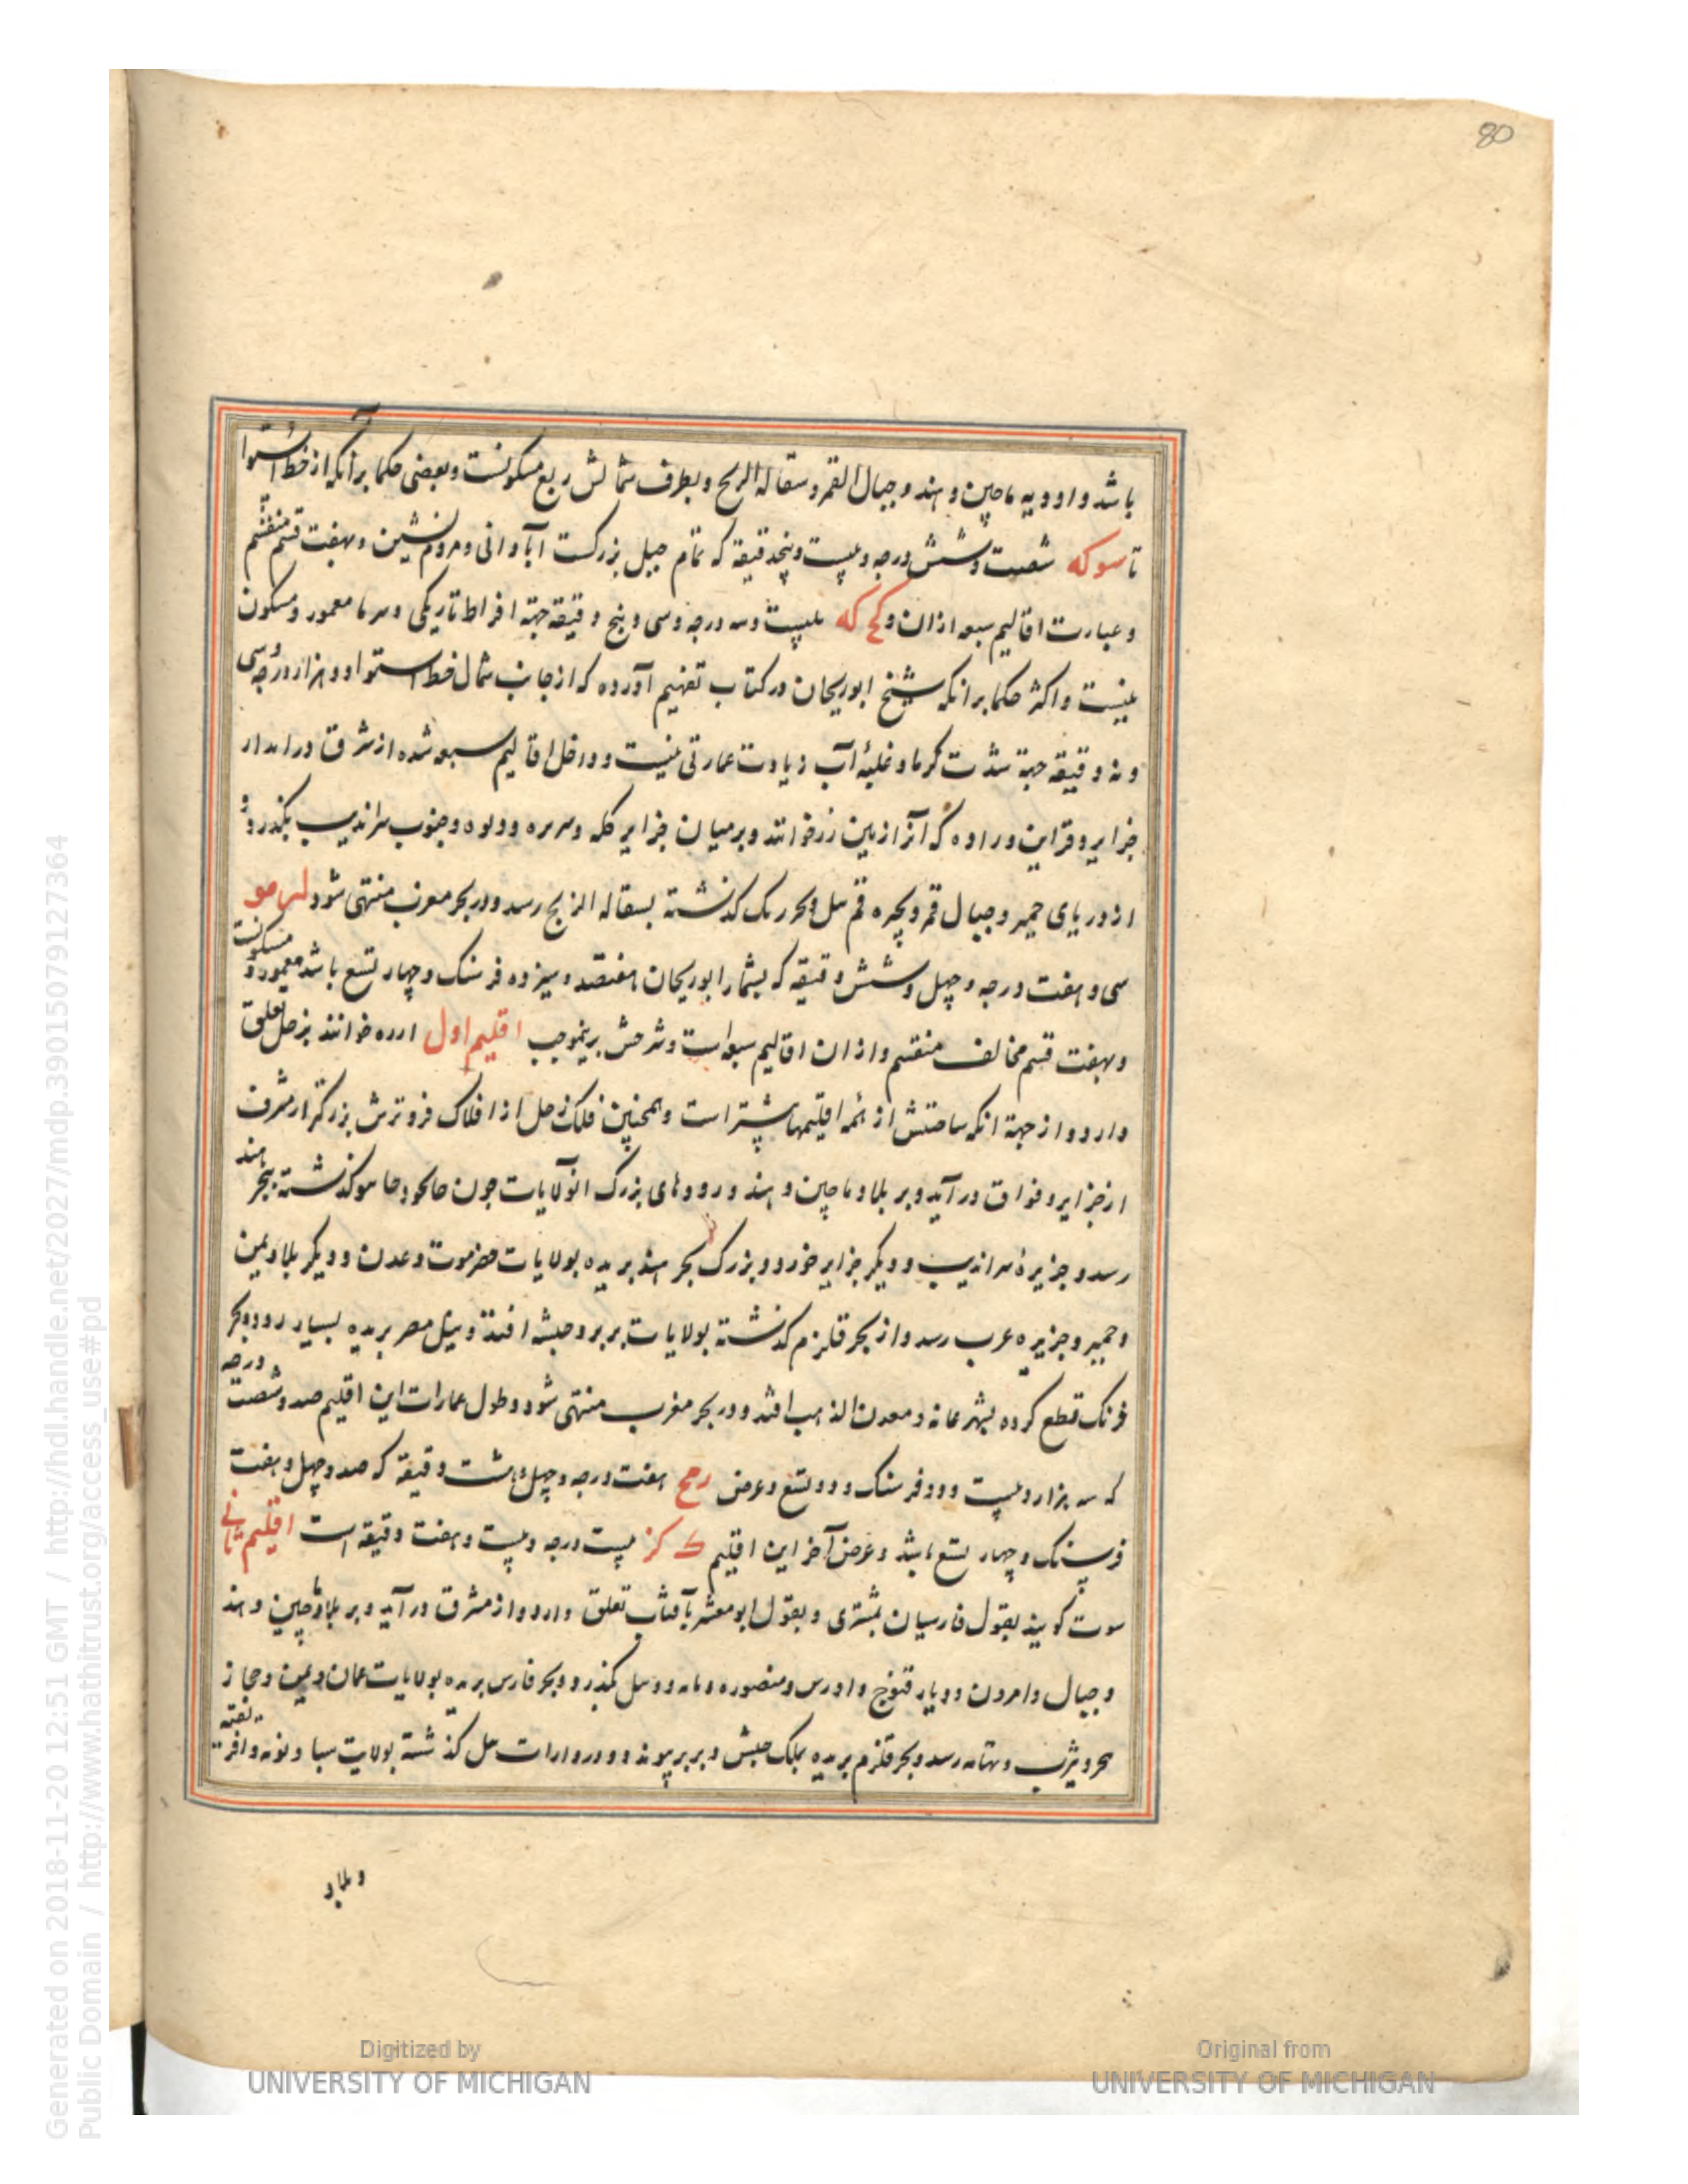 80
باشد و اودیه ماچین و هند و جبال القمر و سقاله الریح و بطرف شمالش ربع مسکونست و بعضی حکما برآنکه از خط استوا
تا سوکه شصت و شش درجه و بیست و پنجدقیقه که تمام جبل بزرکست آبادانی و مردم نشین و بهفت قسم منقسم
و عبارت اقالیم سبعه ازان و کح که بیست و سه درجه و سی و پنج دقیقه جهة افراط تاریکی و سرما معمور و مسکون
نیست و اکثر حکما برانکه شیخ ابوریحان در کتاب تفهیم آورده که از جانب شمال خط استوا دوهزار درجه سی
و نه دقیقه جهة شدت کرما و غلبهٔ آب زیادت عمارتی نیست و داخل اقالیم سبعه شده از شرق درامدار
جزایر و قراین وراوه که آنرا زمین زر خوانند و بر میان جزایر کله و سریره و جنوب سراندیب بگذرد و
از دریای حمیر و جبال قمر و بحیره قم کذشته بسقاله الزبج رسد و در بحر مغرب منتهی شود لر مو
سی و هفت درجه و چهل و شش دقیقه که بشمار ابوریحان هفتصد و سیزده فرسنک و چهار تسع باشد معمور و مسکونست
و بهفت قسم مخالف منقسم و ازان اقالیم سبعه است و شرحش برینموجب اقلیم اول ارره خوانند بزحل تعلق
دارد و از جهة انکه ساحتش از همه اقلیمها بیشتر است و همچنین فلک زحل از افلاک فروترش بزرکتر از مشرق
از جزایر وقواق درآید و بر بلاد ماچین و هند و رودهای بزرک انولایات چون کذشته ببحر هند
رسد و جزیرهٔ سراندیب و دیکر جزایر خورد و بزرک بحر هند بریده بولایات حضرموت و عدن و دیکر بلاد یمن
و حمیر و جزیره عرب رسد و از بحر قلزم کذشته بولایات بربر و حبشه افتد و نیل مصر بریده بسیار رود و بحر
فرنک قطع کرده بشهر غانه و معدن الذهب افتد و در بحر مغرب منتهی شود و طول عمارات این اقلیم صد و شصت درجه
که سه هزار و بیست و دو فرسنک و دو تسع و عرض رمح هفت درجه و چهل و هشت دقیقه که صد و چهل و هفت
فرسنک و چهار تسع باشد و عرض آخر این اقلیم ک کز بیست درجه و بیست و هفت دقیقه است اقلیم ثانی
سوت کویند بقول فارسیان بمشتری و بقول ابومعشر بآفتاب تعلق دارد و از مشرق درآید و بر بلاد ماچین و هند
و جبال وامرون و دیار قنوج و منصوره بگذرد و بحر فارس بریده بولایات عمان و یمن و حجاز
و یثرب و تهامه رسد و بحر قلزم بریده بملک حبش و بربر پیوندد و رودارات نیل کذشته بولایت سبا و نوبه و افریقیه
و بلاد